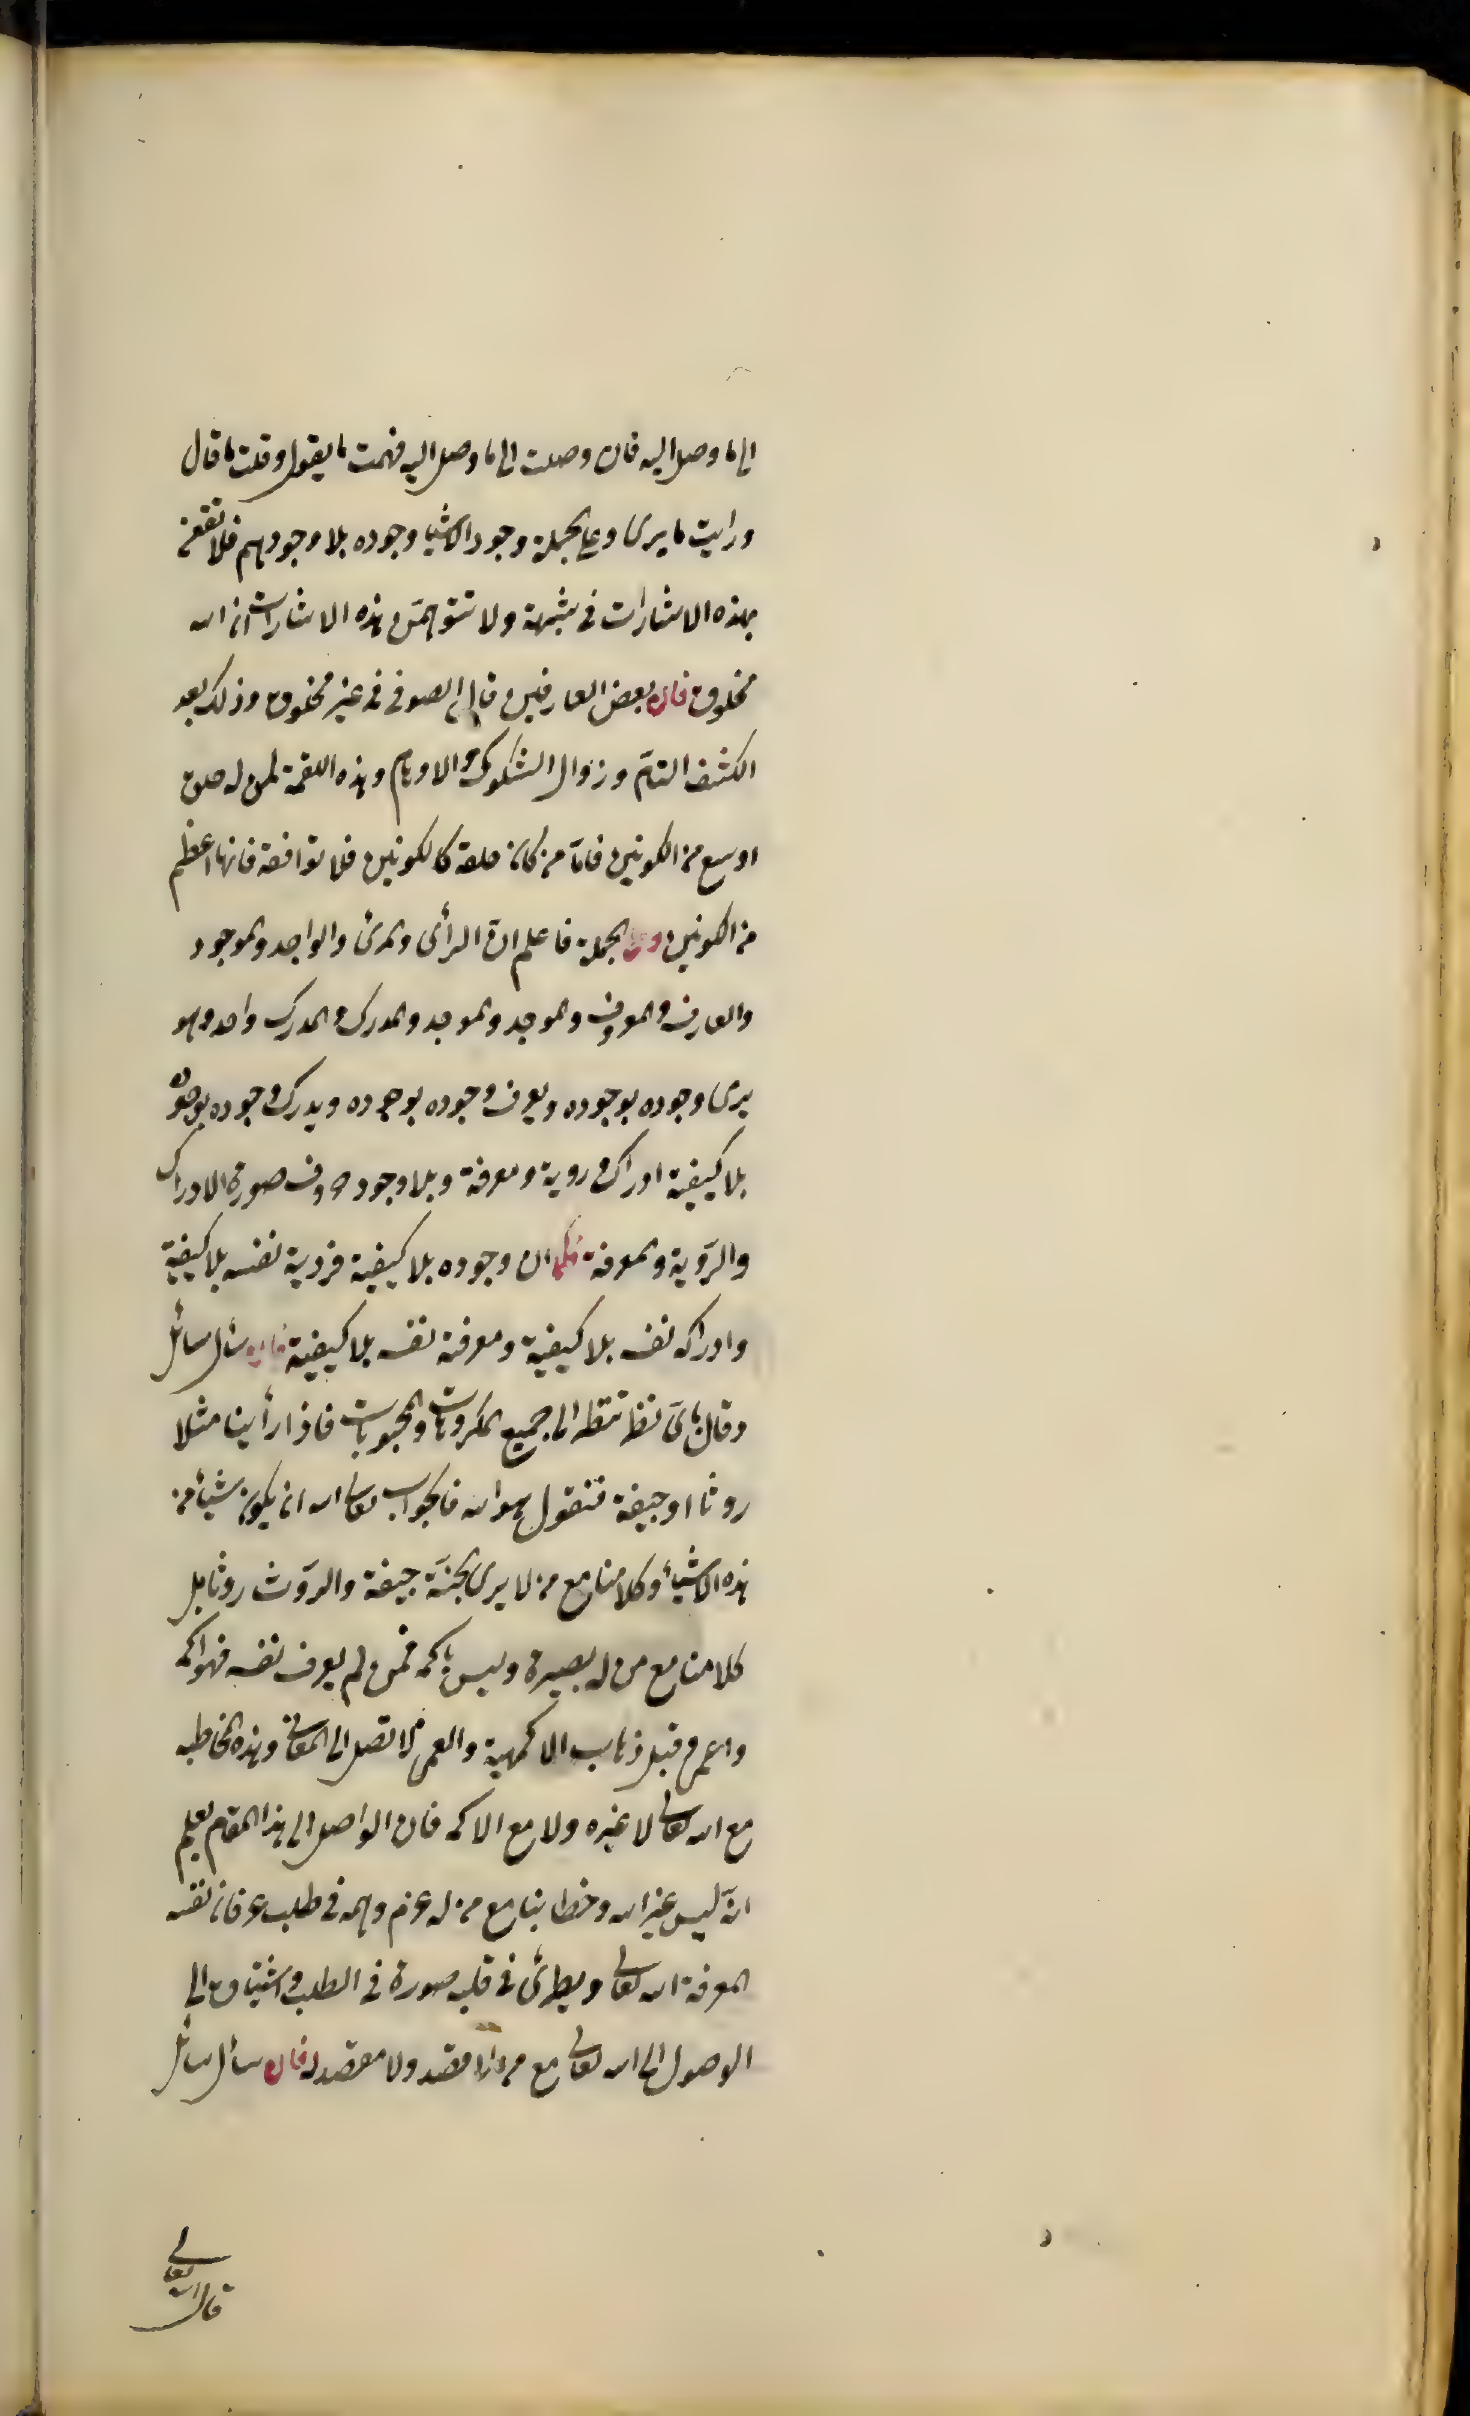 الى ما وصل اليه فان وصلت الى ما وصل اليه فهمت ما يقول وقلت ما قال
ورايت ما يرى وعلى الجملة وجود الاشيا وجوده بلا وجودهم فلا تقعن
بهذه الاشارات في شبهة ولا تتوهمن بهذه الاشارات ان الله
مخلوق فان بعض العارفين قال الصوفي في غير مخلوق وذلك بعد
الكشف التام وزوال الشكوك والاوهام وهذه اللقمة لمن له حلق
اوسع من الكونين فاما من كان حلقه كالكونين فلا توافقه فانها اعظم
من الكونين وعلى الجملة فاعلم ان الرأى والمرئ والواجد والموجود
والعارف والمعروف والموجد والموجد والمدرك والمدرك واحد وهو
يرى وجوده بوجوده ويعرف وجوده بوجوده ويدرك وجوده بوجوده
بلا كيفية ادراك وروية ومعرفة وبلا وجود حروف صورة الادراك
والروية والمعرفة فكما ان وجوده بلا كيفية فروية نفسه بلا كيفية
وادراكه نفسه بلا كيفية ومعرفة نفسه بلا كيفية فان سأل سائل
وقال باى نظر تنظر الى جميع المكروهات والمحبوبات فاذا رأينا مثلا
روثا او جيفة فنقول هو الله فالجواب تعالى الله ان يكون شيأ من
هذه الاشيأ وكلامنا مع من لا يرى الجيفة جيفة والروث روثا بل
كلامنا مع من له بصيرة وليس باكمه فمن لم يعرف نفسه فهو اكمه
واعمى وقبل ذهاب الاكمهية والعمى لا تصل الى المعانى وهذه المخاطبه
مع الله تعالى لا غيره ولا مع الاكمه فان الواصل الى هذا المقام يعلم
انه ليس غير الله وخطابنا مع من له عزم وهمه في طلب عرفان نفسه
لمعرفة الله تعالى ويطرئ في قلبه صورة في الطلب واشتياق الى
الوصول الى الله تعالى مع من لا مقصد ولا مقصد له فان سأل سائل
قال الله تعالى